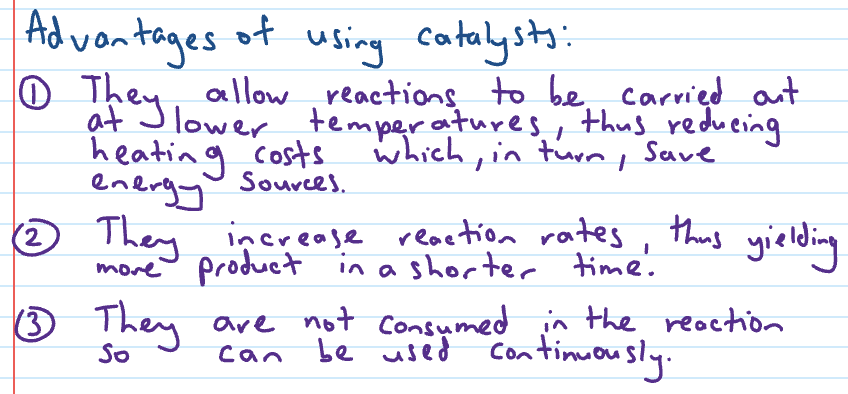 Advantages of using catalysts:
① They allow reactions to be carried out
at lower temperatures, thus reducing
heating costs which, in turn, save
energy sources.
② They increase reaction rates, thus yielding
more product in a shorter time.
③ They are not consumed in the reaction
so can be used continuously.